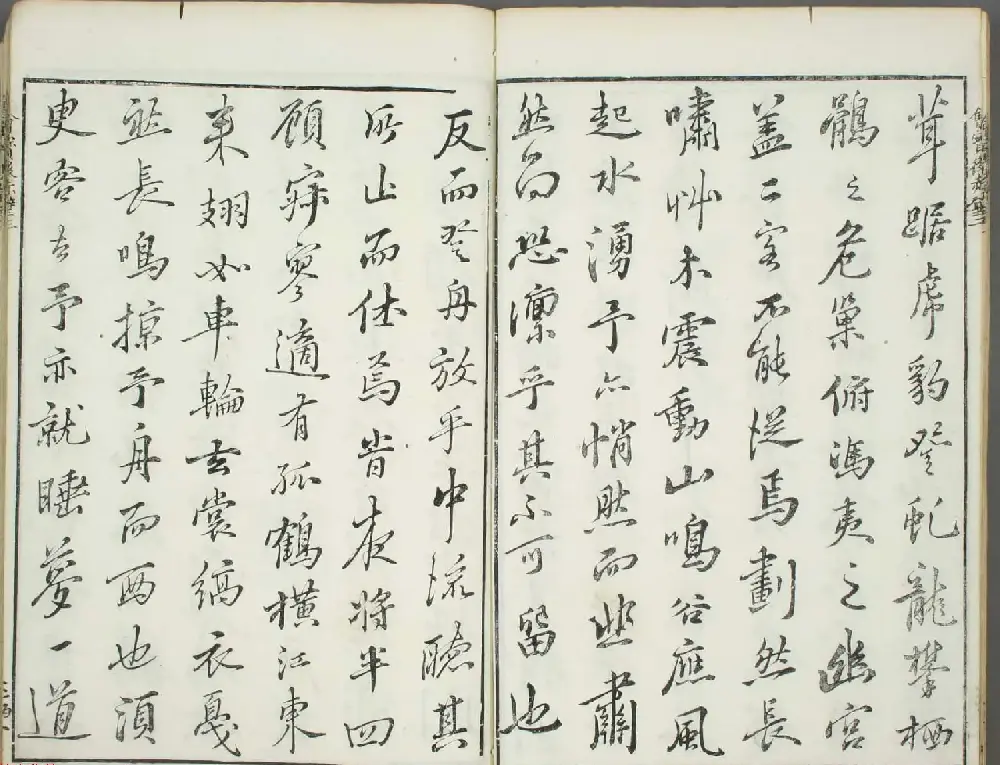 茸踞虎豹登虬龍攀栖
鶻之危巢俯馮夷之幽宮
盖二客不能從焉劃然長
嘯艸木震動山鳴谷應風
起水湧予亦悄然而悲肅
然而恐凛乎其不可留也
反而登舟放乎中流聽其
所止而休焉旹夜将半四
顧寂寥適有孤鶴橫江東
来翅如車輪玄裳縞衣戛
然長鳴掠予舟而西也須
臾客去予亦就睡夢一道